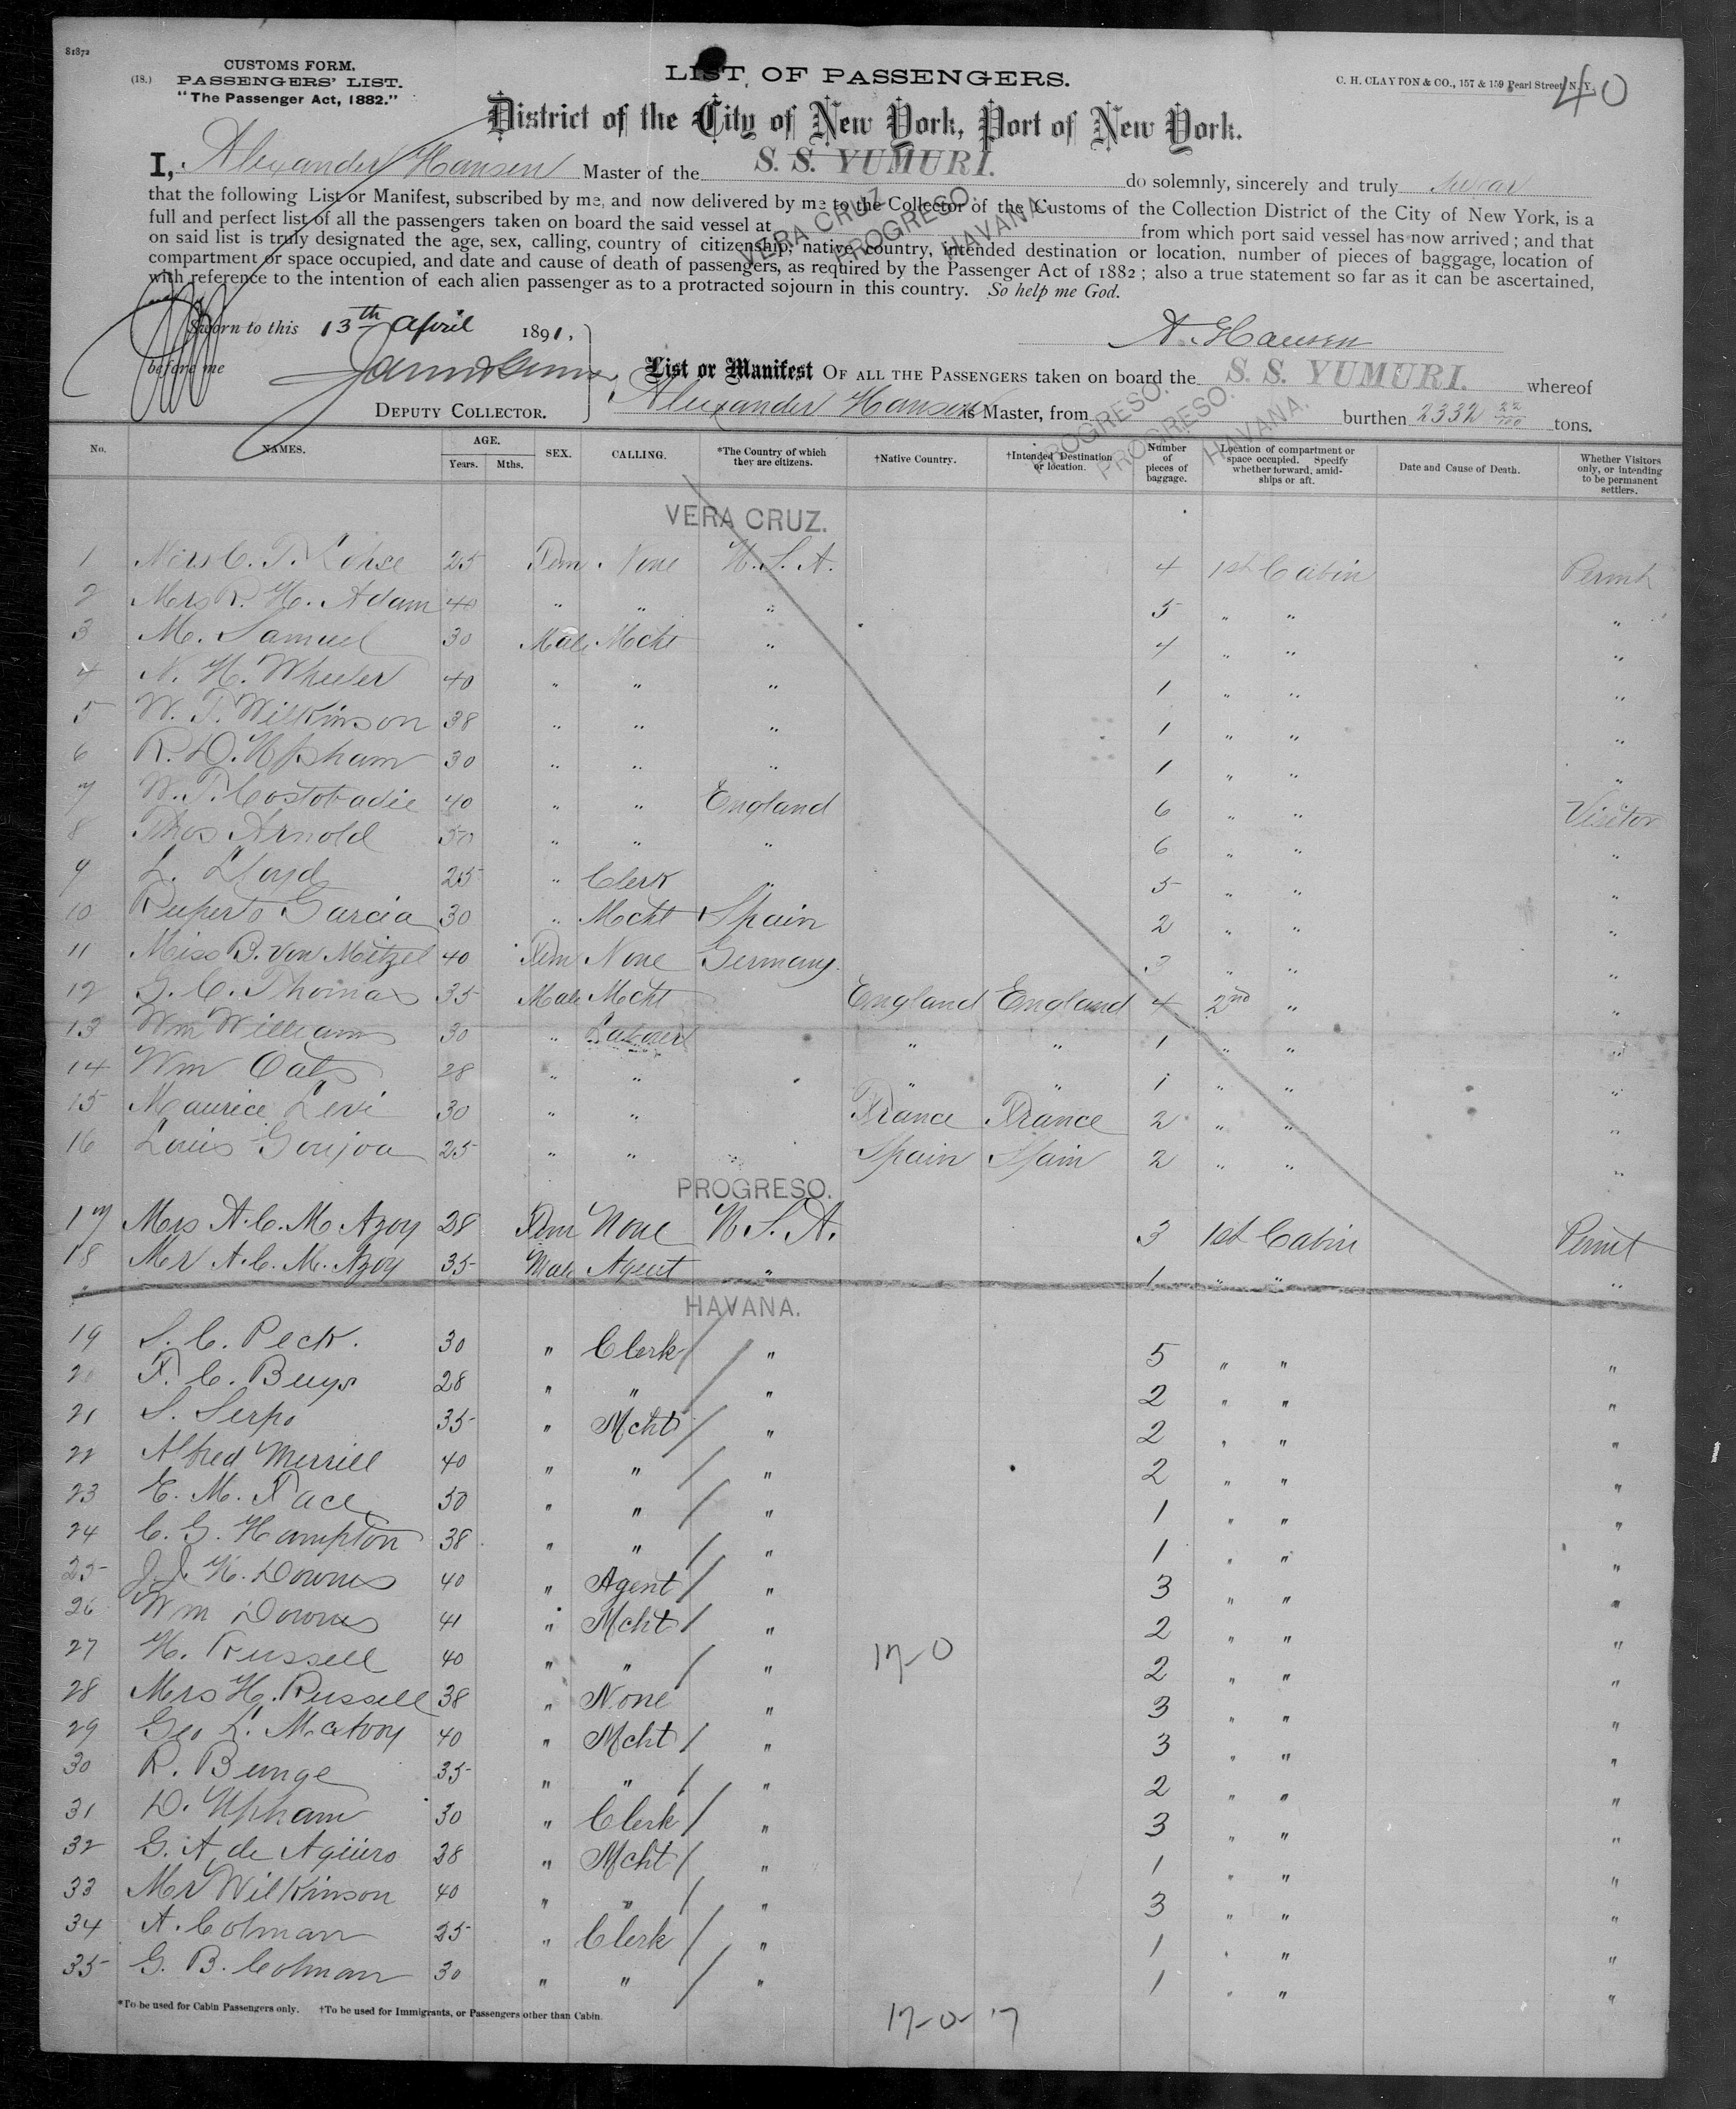 81872
CUSTOMS FORM.
(18.) PASSENGERS' LIST.
"The Passenger Act, 1882."
LIST OF PASSENGERS.
C. H. CLAYTON & CO., 157 & 159 Pearl Street, N. Y.
40
District of the City of New York, Port of New York.
I, Alexander Hansen Master of the S. S. YUMURI. do solemnly, sincerely and truly swear
that the following List or Manifest, subscribed by me, and now delivered by me to the Collector of the Customs of the Collection District of the City of New York, is a
full and perfect list of all the passengers taken on board the said vessel at VERA CRUZ PROGRESO. HAVANA. from which port said vessel has now arrived; and that
on said list is truly designated the age, sex, calling, country of citizenship, native country, intended destination or location, number of pieces of baggage, location of
compartment or space occupied, and date and cause of death of passengers, as required by the Passenger Act of 1882; also a true statement so far as it can be ascertained,
with reference to the intention of each alien passenger as to a protracted sojourn in this country. So help me God.
Sworn to this 13th April 1891.
A. Hansen
before me
DEPUTY COLLECTOR.
List or Manifest OF ALL THE PASSENGERS taken on board the S. S. YUMURI. whereof
Alexander Hansen is Master, from PROGRESO. PROGRESO. HAVANA. burthen 2332 22/100 tons.
No. NAMES. AGE. Years. Mths. SEX. CALLING. *The Country of which they are citizens. †Native Country. †Intended Destination or location. Number of pieces of baggage. Location of compartment or space occupied. Specify whether forward, amidships or aft. Date and Cause of Death. Whether Visitors only, or intending to be permanent settlers.
VERA CRUZ.
1 Mrs C. T. 25 Fem None U.S.A. 4 1st Cabin Permt
2 Mrs R. H. Adam 40 " " " 5 " " "
3 M. Samuel 30 Male Mcht " 4 " " "
4 N. H. Wheeler 40 " " " 1 " " "
5 W. T. Wilkinson 38 " " " 1 " " "
6 R. D. Upsham 30 " " " 1 " " "
7 W. T. Costobadie 40 " " England 6 " " Visitor
8 Thos Arnold 50 " " " 6 " " "
9 L. Lloyd 25 " Clerk " 5 " " "
10 Ruperto Garcia 30 " Mcht Spain 2 " " "
11 Miss B. von Mitzel 40 Fem None Germany 3 " " "
12 G. C. Thomas 35 Male Mcht England England 4 2nd " "
13 Wm Williams 30 " Laborer " " 1 " " "
14 Wm Oats 28 " " " " 1 " " "
15 Maurice Levi 30 " " France France 2 " " "
16 Louis Goujoa 25 " " Spain Spain 2 " " "
PROGRESO.
17 Mrs A. C. M. Azoy 28 Fem None U.S.A. 3 1st Cabin Permt
18 Mr A. C. M. Azoy 35 Male Agent " 1 " " "
HAVANA.
19 S. C. Peck. 30 " Clerk / " 5 " " "
20 F. C. Buys 28 " " / " 2 " " "
21 S. Serpo 35 " Mcht / " 2 " " "
22 Alfred Merrill 40 " " / " 2 " " "
23 E. M. Face 50 " " / " 1 " " "
24 C. G. Hampton 38 " " / " 1 " " "
25 J. J. H. Downes 40 " Agent / " 3 " " "
26 Wm Downes 41 " Mcht / " 2 " " "
27 H. Russell 40 " " / " 17-0 2 " " "
28 Mrs H. Russell 38 " None " 3 " " "
29 Geo L. Matony 40 " Mcht / " 3 " " "
30 R. Bunge 35 " " / " 2 " " "
31 D. Upham 30 " Clerk / " 3 " " "
32 G. A. de Agüero 28 " Mcht / " 1 " " "
33 Mr Wilkinson 40 " " / " 3 " " "
34 A. Colman 25 " Clerk / " 1 " " "
35 G. B. Colman 30 " " / " 1 " " "
*To be used for Cabin Passengers only. †To be used for Immigrants, or Passengers other than Cabin.
17-0-17